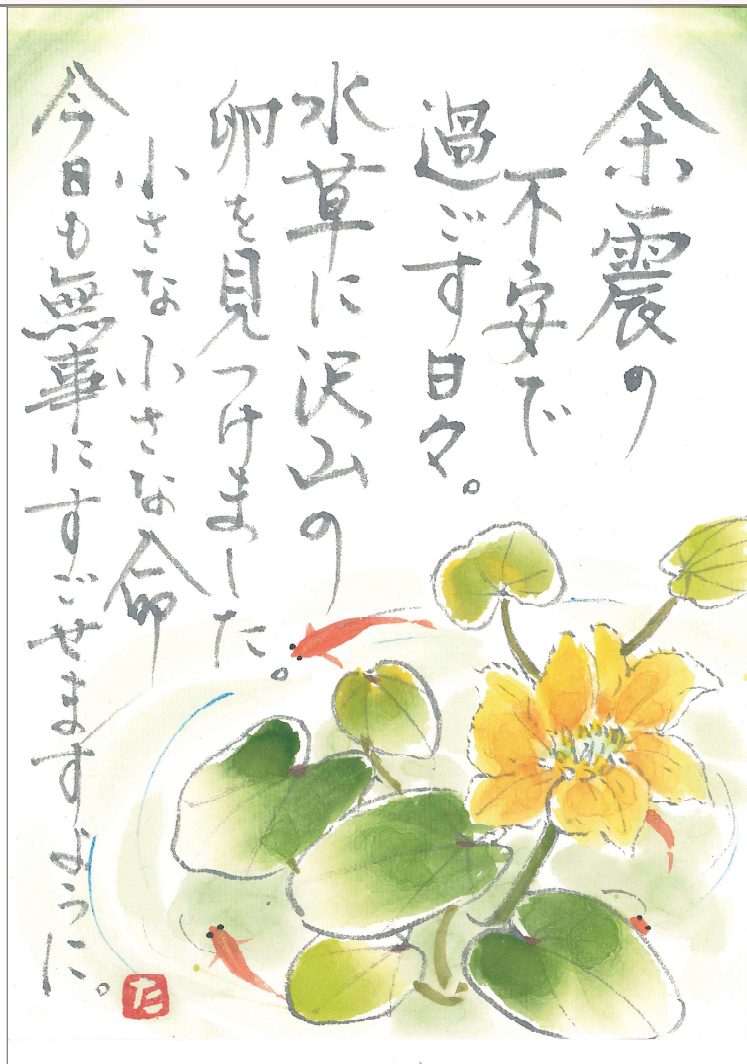 余震の
不安で
過ごす日々。
水草に沢山の
卵を見つけました。
小さな小さな命
今日も無事にすごせますように。
た